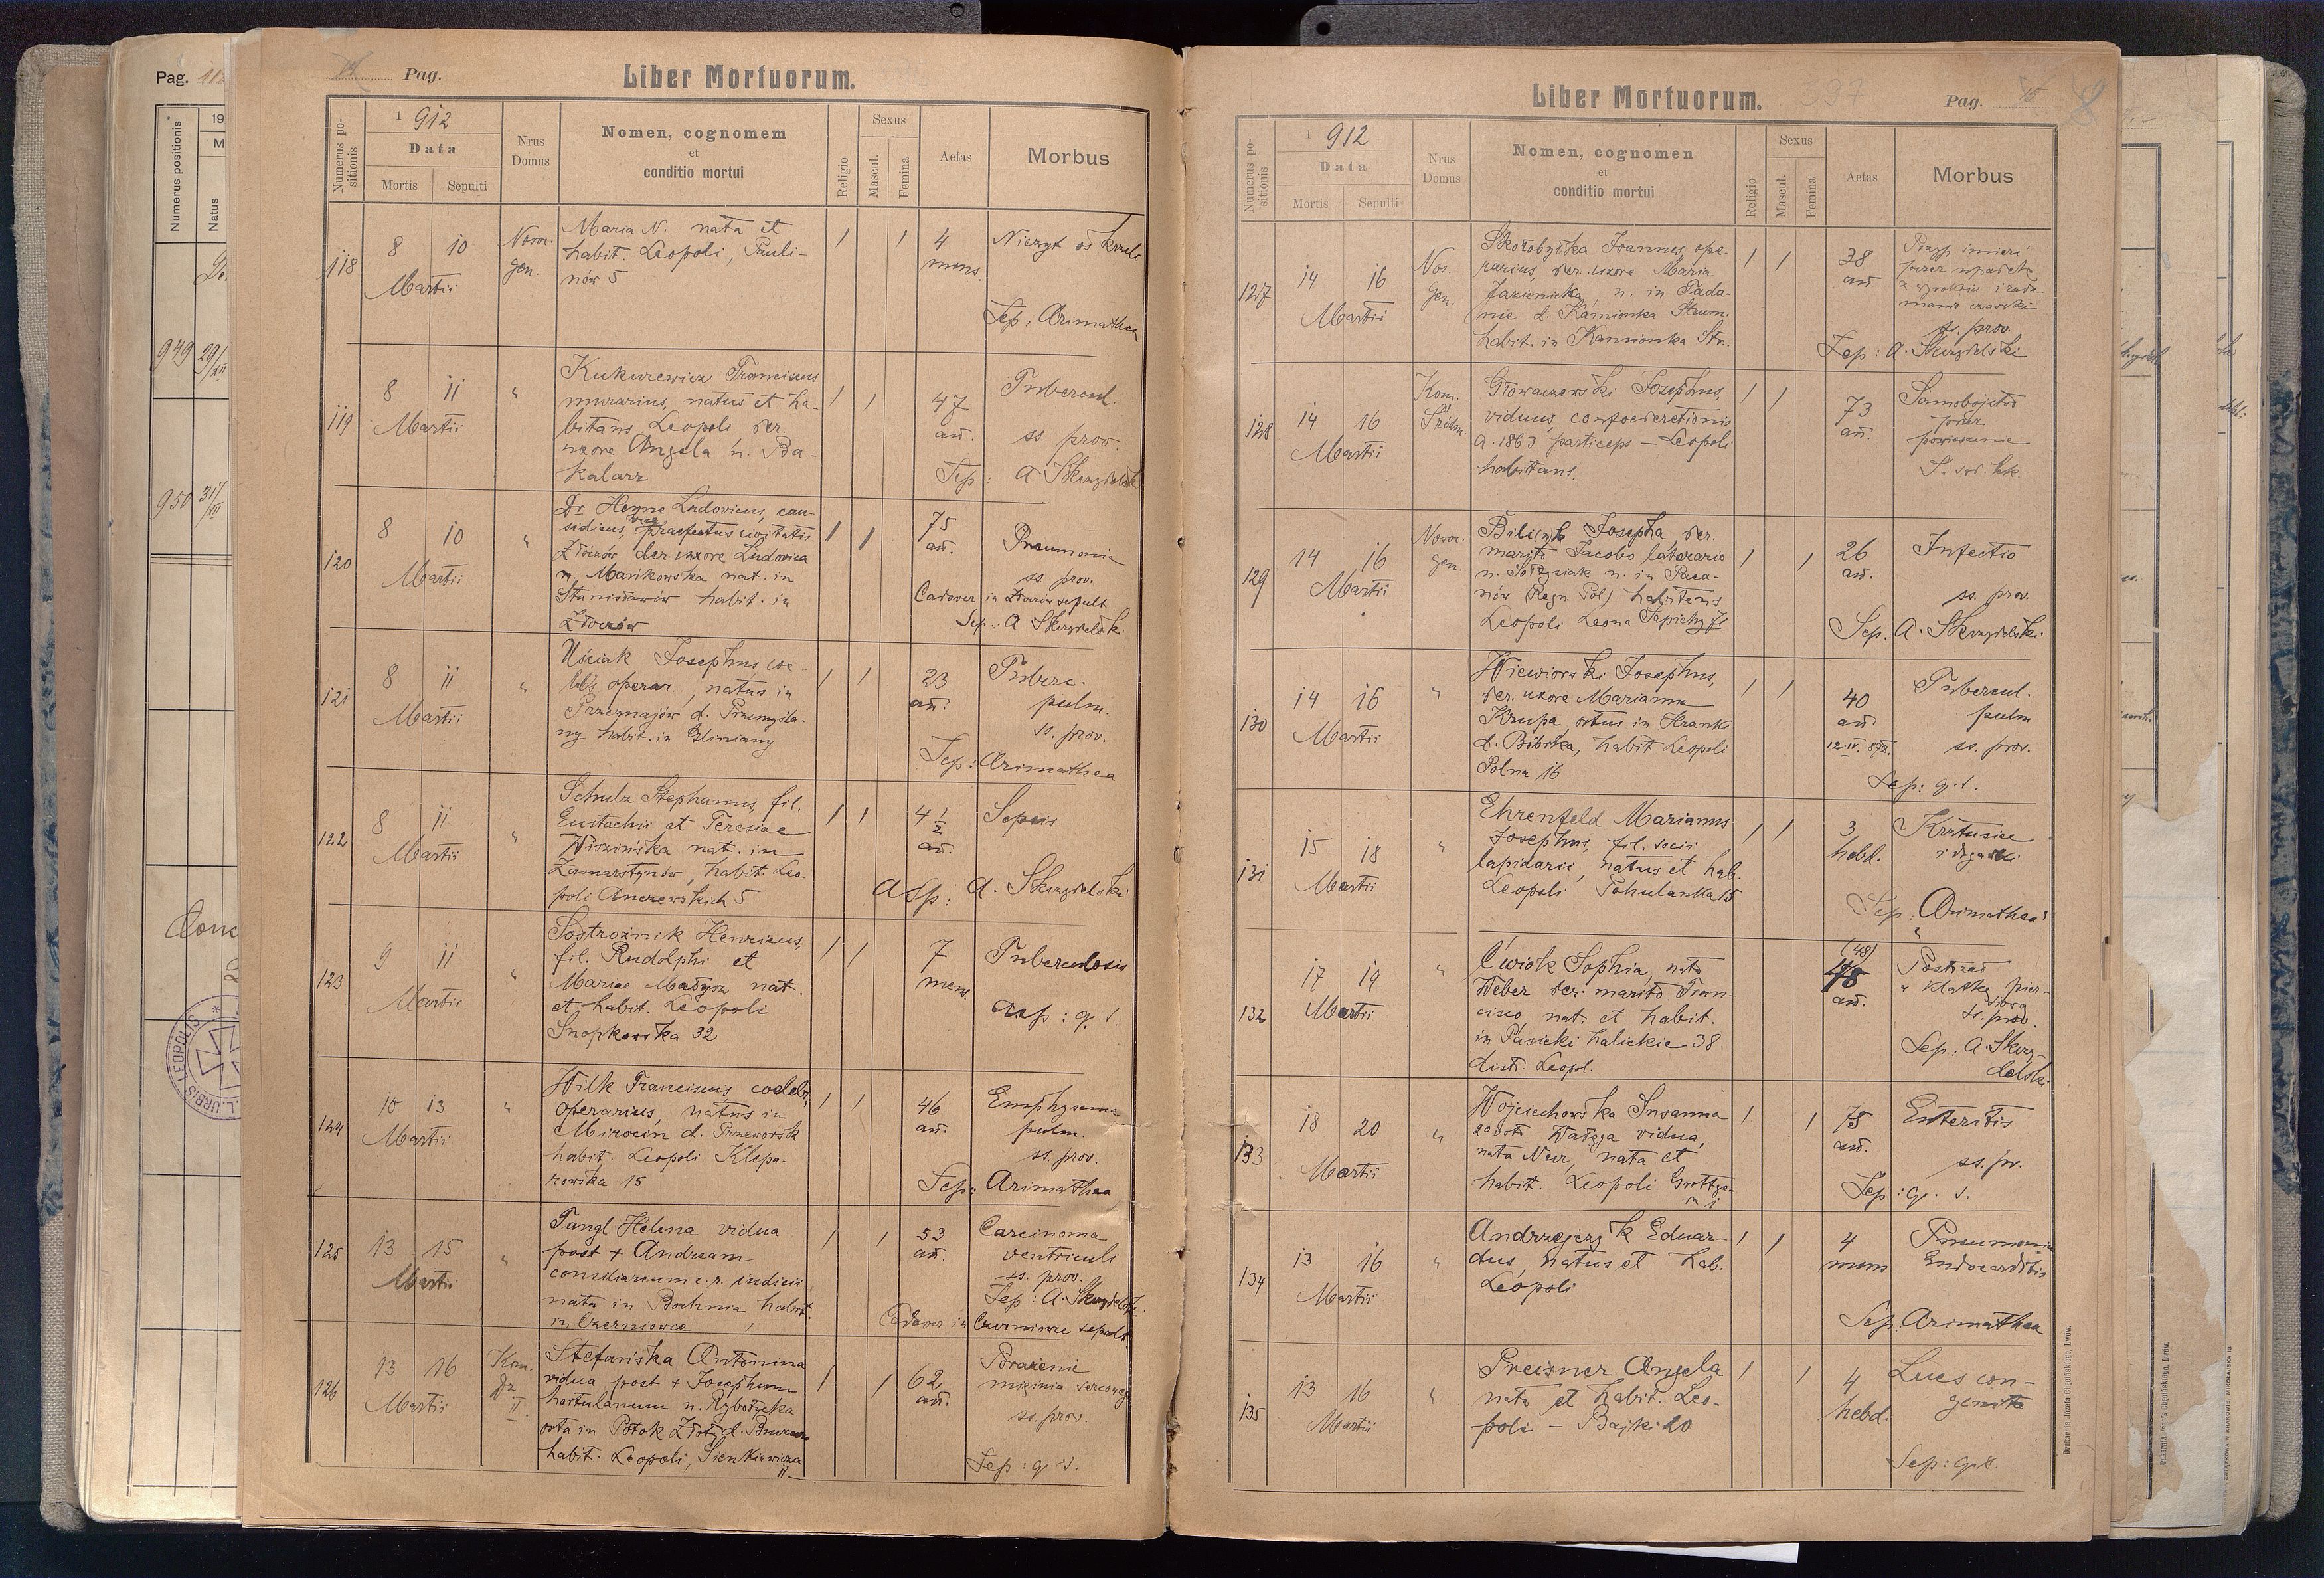 Pag. 11
Numerus positionis
19
M
Natus
949 29/XII
950 31/XII
Pag.
Liber Mortuorum.
Numerus positionis
1912
Data
Mortis
Sepulti
Nrus Domus
Nomen, cognomem
et
conditio mortui
Religio
Sexus
Mascul.
Femina
Aetas
Morbus
118
8 10
Martii
Nosoc. gen.
Maria N. nata et
habit. Leopoli, Pauli-
nów 5
4
mens.
Nieżyt oskrzeli
Sep: Arimathea
119
8 11
Martii
"
Kukurewicz Franciscus
murarius, natus et ha-
bitans Leopoli der.
uxore Angela n. Ba-
kalarz
47
an.
Tubercul.
ss. prov.
Sep: A. Skrzydelski
120
8 10
Martii
"
Dr Heyne Ludovicus, cau-
sidicus, vice praefectus civitatis
Złoczów der. uxore Ludovica
n. Mańkowska nat. in
Stanisławów habit. in
Złoczów
75
an.
Pneumonia
ss prov.
Cadaver in Złoczów sepult.
Sep.: A Skrzydelski.
121
8 11
Martii
"
Uściak Josephus coe-
lebs operar., natus in
Przegnajów d. Przemyśla-
ny habit. in Gliniany
23
an.
Tuberc.
pulm.
ss. prov.
Sep: Arimathea
122
8 11
Martii
"
Schulz Stephanus, fil.
Eustachii et Teresiae
Wiszińska nat. in
Zamarstynów, habit. Leo-
poli 5
4 1/2
an.
Sepsis
Asp: A. Skrzydelski
123
9 11
Martii
"
Sostrożnik Henricus,
fil. Rudolphi et
Mariae Madysz nat.
et habit. Leopoli
Snopkowska 32
7
mens.
Tuberculosis
asp: q. s.
124
10 13
Martii
"
Wilk Franciscus, coelebs,
operarius, natus in
Mirocin d. Przeworsk
habit. Leopoli Klepa-
rowska 15
46
an.
Emphysema
pulm.
ss. prov.
Sep: Arimathea
125
13 15
Martii
"
Tangl Helena vidua
post + Andream
consiliarium c. r. iudicii
nata in Bochnia habit.
in Czerniowce
53
an.
Carcinoma
ventriculi
ss. prov.
Sep: A. Skrzydelski.
Cadaver in Czerniowce sepult.
126
13 16
Martii
Kom.
Dz
II.
Stefańska Antonina
vidua post + Josephum
hortulanum n. Rybotycka
orta in Potok Złoty d.
habit. Leopoli, Sienkiewicza
11
62
an.
Porażenie
mięśnia sercowego
ss. prov.
Sep: q s.
Liber Mortuorum.
397
Pag.
Numerus positionis
1912
Data
Mortis
Sepulti
Nrus Domus
Nomen, cognomen
et
conditio mortui
Religio
Sexus
Mascul.
Femina
Aetas
Morbus
127
14 16
Martii
Nos.
Gen.
Skołobyłka Joannes, ope-
rarius, der. uxore Maria
Jazienicka, n. in Tada-
nie d. Kamionka Strum.
habit. in Kamionka Str.
38
an
śmierci
przez upadek
z i zała-
manie czaszki
ss. prov.
Sep: A. Skrzydelski
128
14 16
Martii
Kom.
Śródm.
Głowaczewski Josephus,
viduus, confoederationis
a. 1863 particeps – Leopoli
habitans.
73
an.
Samobójstwo
przez
powieszenie
129
14 16
Martii
Nosoc.
gen.
Bilicyk Josepha, der.
marito Jacobo laborario
n. Sołtysiak n. in Paca-
nów (Regn. Pol.) habitans
Leopoli Leona Sapiehy 71
26
an.
Infectio
ss. prov.
Sep. A. Skrzydelski.
130
14 16
Martii
"
Wiewiorski Josephus,
der. uxore Marianna
Krupa, ortus in Hranki
d. Bóbrka, habit Leopoli
Polna 16
40
an
12.IV.872.
Tubercul.
pulm
ss. prov.
Sep: q. s.
131
15 18
Martii
"
Ehrenfeld Marianus
Josephus, fil. socii
lapidarii, natus et hab.
Leopoli Pohulanka 15
3
hebd.
Krztusiec
i drgawki
Sep: Arimathea
132
17 19
Martii
"
Ćwiok Sophia, nata
Weber der. marito Fran-
cisco nat. et habit.
in Pasieki halickie 38
distr. Leopol.
(48)
48
an.
Postrzał
w klatkę pier-
siową
ss. prov.
Sep: A. Skrzy-
delski
133
18 20
Martii
"
Wojciechowska Susanna
20 voti Wałęga vidua,
nata Neur, nata et
habit. Leopoli Grottge-
ra 1
75
an.
Enteritis
ss. pr.
Sep: q. s.
134
13 16
Martii
"
Andrzejczyk Eduar-
dus, natus et hab.
Leopoli
4
mens
Pneumonia
Endocarditis
Sep. Arimathea
135
13 16
Martii
"
Preisner Angela
nata et habit. Leo-
poli – Bajki 20
4
hebd.
Lues con-
genita
Sep: q s.
Drukarnia Józefa Chęcińskiego, Lwów.